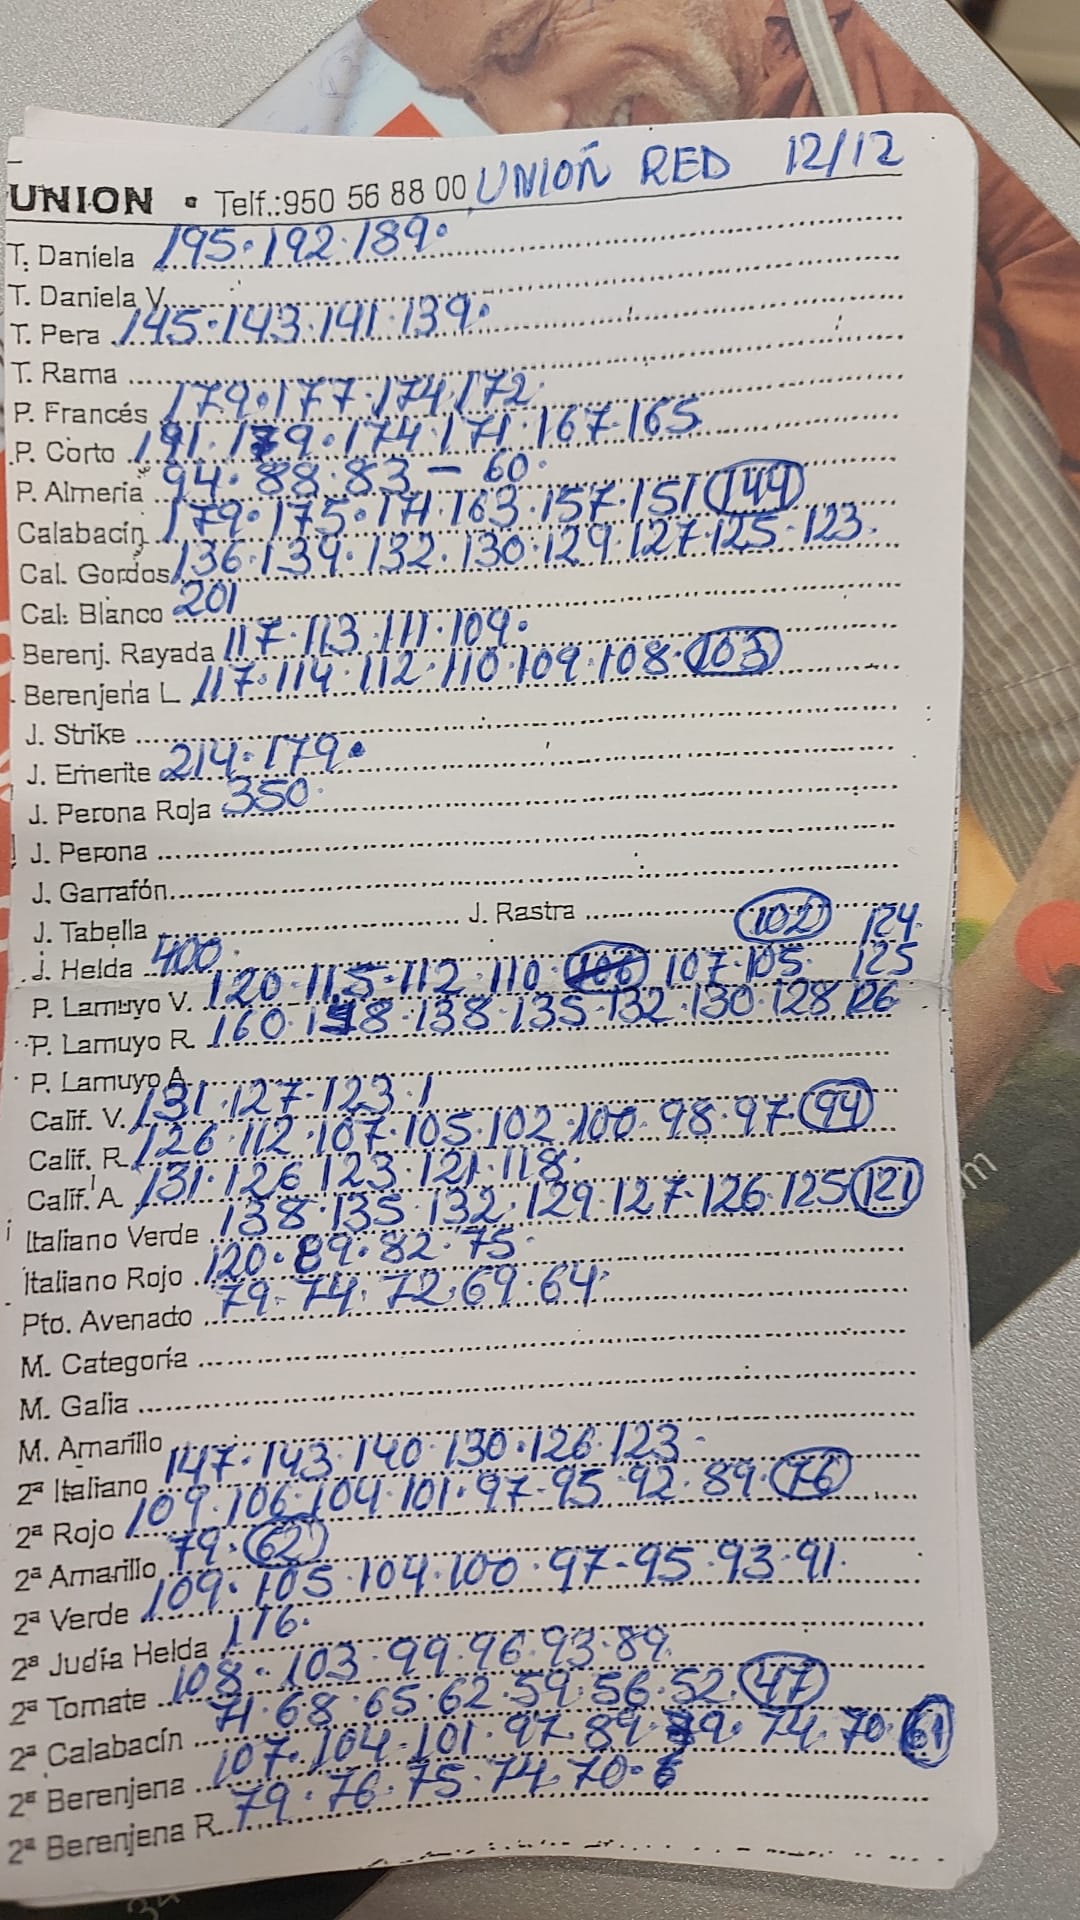 UNION • Telf.:950 56 88 00 UNION RED 12/12
T. Daniela 195.192.189.
T. Daniela V.
T. Pera 145.143.141.139.
T. Rama
P. Francés 179.177.174.172.
P. Corto 191.179.174.171.167.165
P. Almeria 94.88.83 - 60.
Calabacín 179.175.171.163.157.151 149
Cal. Gordos 136.134.132.130.129.127.125.123.
Cal. Blanco 201
Berenj. Rayada 117.113.111.109.
Berenjena L 117.114.112.110.109.108.103
J. Strike
J. Emerite 214.179.
J. Perona Roja 350.
J. Perona
J. Garrafón
J. Tabella J. Rastra 102 124.
J. Helda 400. 125
P. Lamuyo V. 120.115.112.110. 107.105.
P. Lamuyo R. 160.138.135.132.130.128 126
P. Lamuyo A.
Calif. V. 131.127.123.1
Calif. R. 126.112.107.105.102.100.98.97.94
Calif. A. 131.126 123.121.118.
Italiano Verde 138.135.132.129.127.126.125 121
Italiano Rojo 120.89.82.75.
Pto. Avenado 79.74.72.69.64.
M. Categoría
M. Galia
M. Amarillo
2ª Italiano 147.143.140.130.126.123.
2ª Rojo 109.106.104.101.97.95.92.89.76
2ª Amarillo 79.62
2ª Verde 109.105.104.100.97.95.93.91.
2ª Judía Helda 116.
2ª Tomate 108.103.99.96.93.89.
2ª Calabacín 71.68.65.62.59.56.52.47
2ª Berenjena 107.104.101.97.89.79.74.70.61
2ª Berenjena R. 79.76.75.74.70.6